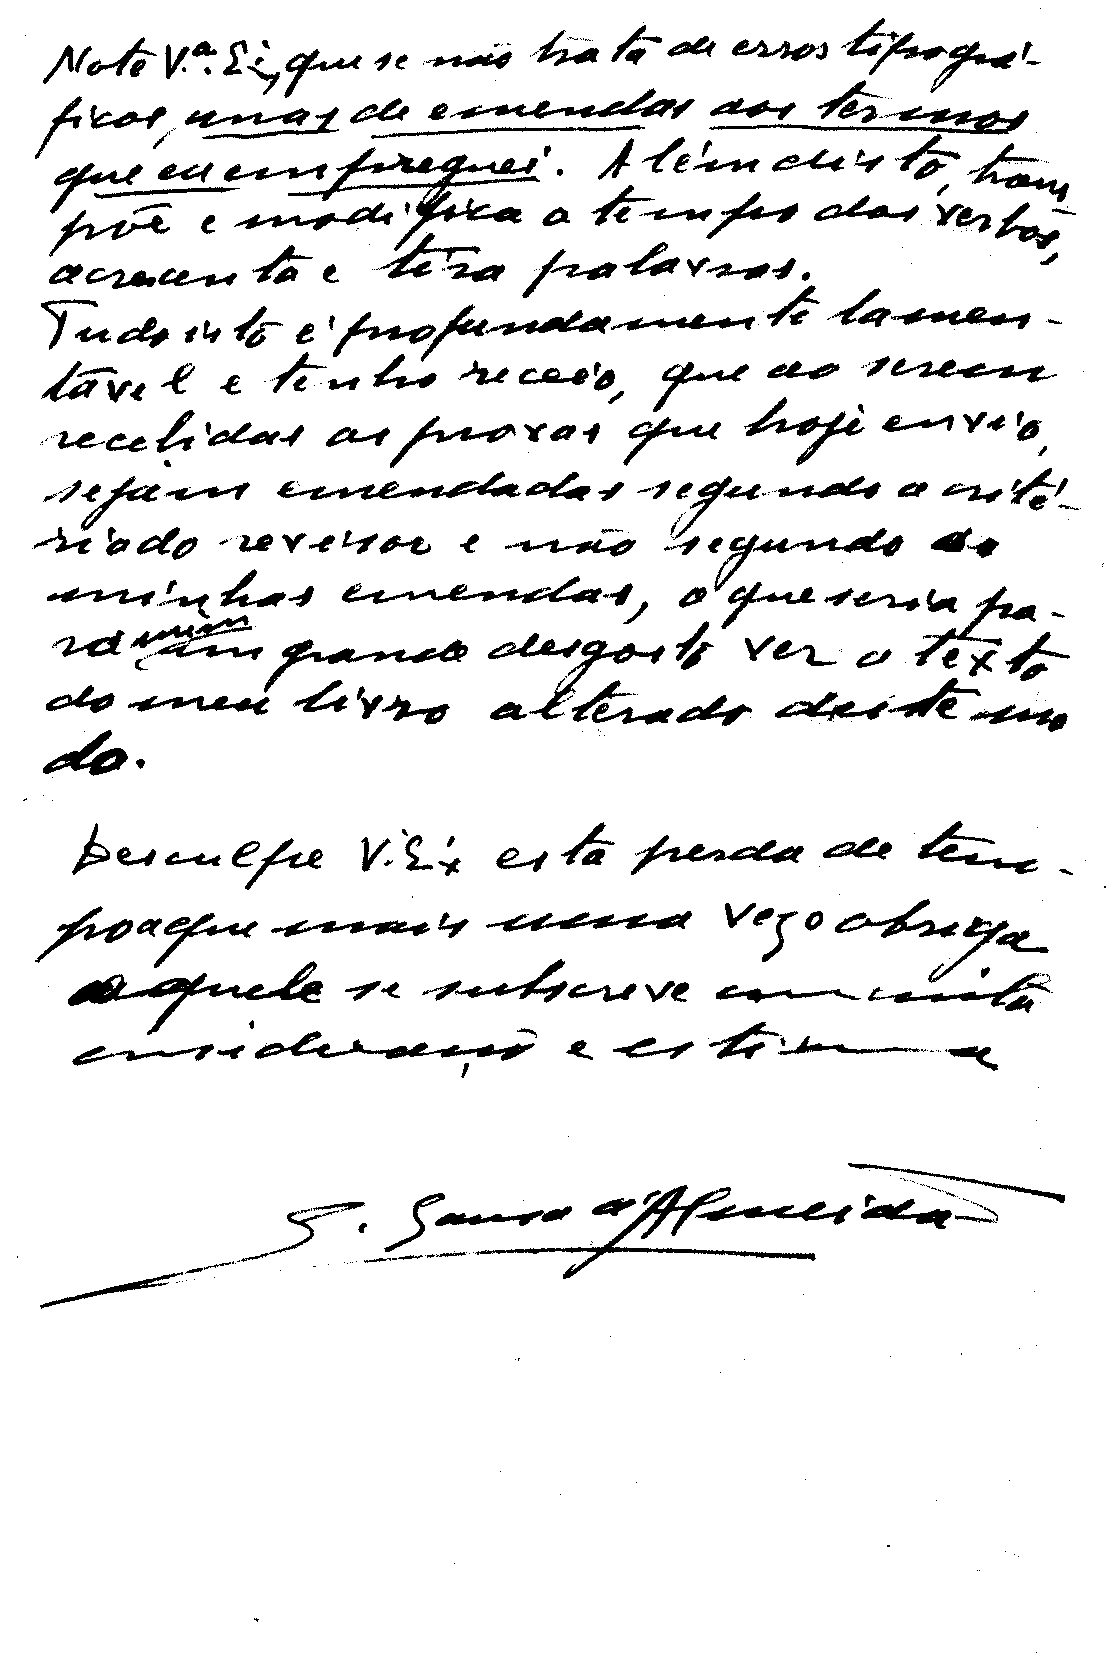 Note V.ª Ex, que se não trata de erros tipográ-
ficos, mas de emendas aos termos
que eu empreguei. Além disto, trans
põe e modifica o tempo dos verbos,
acrescenta e tira palavras.
Tudo isto é profundamente lamen-
tável e tenho receio, que ao serem
recebidas as provas que hoje envio,
sejam emendadas segundo o crité-
rio do revisor e não segundo as
minhas emendas, o que seria pa-
ra mim um grande desgosto ver o texto
do meu livro alterado deste mo
do.
Desculpe V. Ex esta perda de tem-
po a que mais uma vez o obriga
aquele se subscreve com muita
consideração e estima
S. Sousa d'Almeida